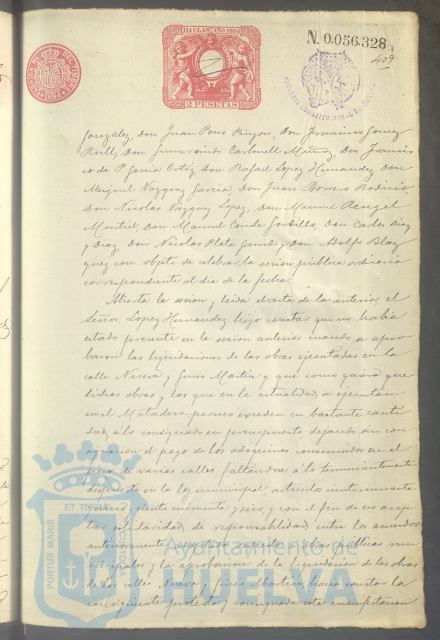 11ª CLASE AÑO 1894
2 PESETAS
N. 0.056.328
409
Gonzalez, Don Juan Pons Pinzon, Don Francisco Gomez
Rull, Don Gumersindo Carbonell Muñoz, Don Francis
co de P. Garcia Ortiz, Don Rafael Lopez Hernandez, Don
Miguel Vazquez Garcia, Don Juan Borrero
Don Nicolas Vazquez Lopez, Don Manuel Rengel
Montiel, Don Manuel Conde Gordillo, Don Carlos Diaz
y Diaz, Don Nicolas Plata y Don Adolfo Blaz
quez con objeto de celebrar la sesion publica ordinaria
correspondiente al dia de la fecha.
Abierta la sesion y leida el acta de la anterior, el
Señor Lopez Hernandez hizo constar que no habia
estado presente en la sesion anterior cuando se apro
baron las liquidaciones de las obras ejecutadas en la
calle Nueva y Ginés Martin y que como quiera que
dichas obras y las que en la actualidad se ejecutan
en el Matadero exceden en bastante canti
dad a lo consignado en presupuesto dejando sin con
signacion el pago de los adoquines consumidos en el
piso de varias calles faltandose a lo terminantemente
dispuesto en la ley municipal, articulo ciento cincuenta
ciento cincuenta y seis, y con el fin de no acep
tar solidaridad de responsabilidad entre los acuerdos
anteriormente obras públicas mu
nicipales y la aprobacion de la liquidacion de las obras
de las calles Nueva y Ginés Martin, hacia constar la
consiguiente protesta y consignada esta manifestacion
PORTUS MARIS ET TERRAE CUSTODIA
Ayuntamiento de
HUELVA